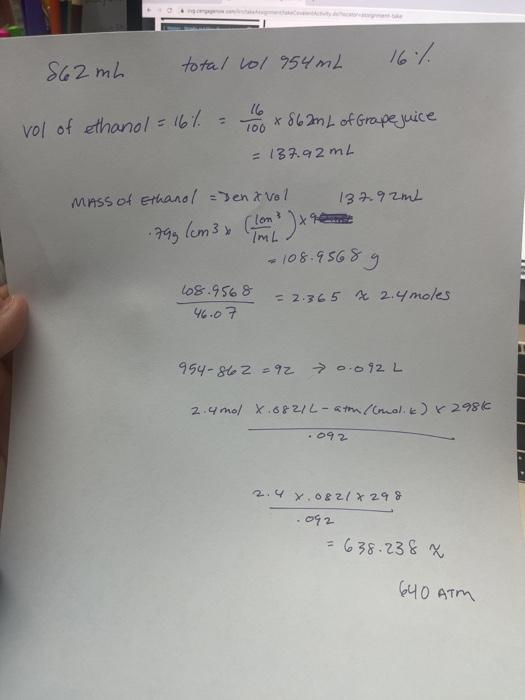 862 mL total vol 954 mL 16 %
vol of ethanol = 16% = 16/100 × 862mL of Grape juice
= 137.92 mL
MASS of Ethanol = Den x Vol 137.92mL
.79g/cm3 x (1cm3/1mL) x
= 108.9568 g
108.9568/46.07 = 2.365 ≈ 2.4 moles
954-862 = 92 → 0.092 L
2.4 mol x .0821 L-atm/(mol.k) x 298K
.092
2.4 x .0821 x 298
.092
= 638.238 ≈
640 ATM